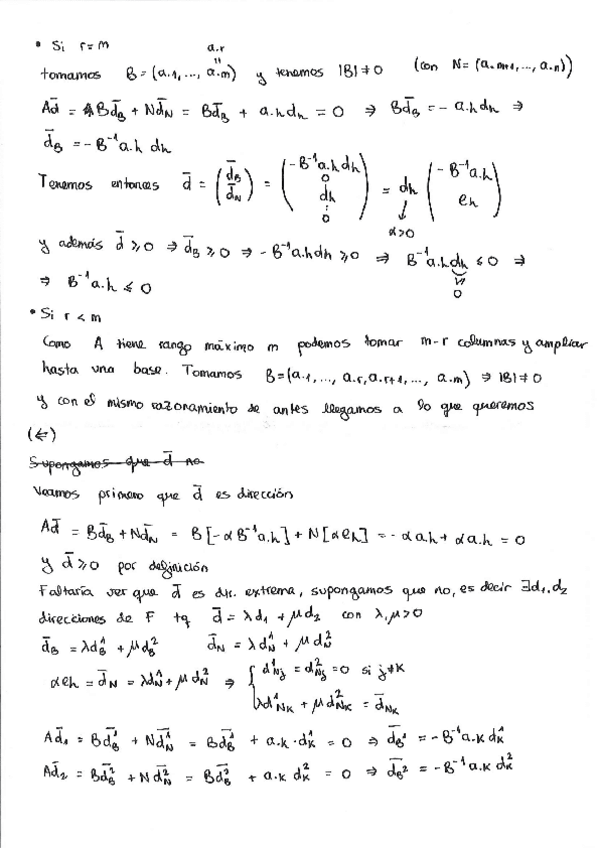 • Si r=m
a.r
"
tomamos B = (a.1, ..., a.m) y tenemos |B| ≠ 0 (con N = (a.m+1, ..., a.n))
Ad̄ = Bd̄_B + Nd̄_N = Bd̄_B + a.h dh = 0 ⇒ Bd̄_B = - a.h dh ⇒
d̄_B = - B⁻¹ a.h dh
Tenemos entonces d̄ = (d̄_B / d̄_N) = (-B⁻¹a.h dh / 0 / dh / ⋮ / 0) = dh (-B⁻¹a.h / eh)
↓
α>0
y además d̄ ≥ 0 ⇒ d̄_B ≥ 0 ⇒ - B⁻¹a.h dh ≥ 0 ⇒ B⁻¹a.h dh ≤ 0 ⇒
∨
0
⇒ B⁻¹a.h ≤ 0
• Si r < m
Como A tiene rango máximo m podemos tomar m-r columnas y ampliar
hasta una base. Tomamos B = (a.1, ..., a.r, a.r+1, ..., a.m) ⇒ |B| ≠ 0
y con el mismo razonamiento de antes llegamos a lo que queremos
(⇐)
Supongamos que d̄ no
Veamos primero que d̄ es dirección
Ad̄ = Bd̄_B + Nd̄_N = B[-αB⁻¹a.h] + N[αeh] = - αa.h + αa.h = 0
y d̄ ≥ 0 por definición
Faltaría ver que d̄ es dir. extrema, supongamos que no, es decir ∃d1, d2
direcciones de F tq d̄ = λd1 + μd2 con λ, μ > 0
d̄_B = λd¹_B + μd²_B d̄_N = λd¹_N + μd²_N
αeh = d̄_N = λd¹_N + μd²_N ⇒ { d¹_Nj = d²_Nj = 0 si j≠K
λd¹_NK + μd²_NK = d̄_NK
Ad̄1 = Bd̄¹_B + Nd̄¹_N = Bd̄¹_B + a.K · d¹_K = 0 ⇒ d̄_B¹ = - B⁻¹a.K d¹_K
Ad̄2 = Bd̄²_B + Nd̄²_N = Bd̄²_B + a.K d²_K = 0 ⇒ d̄_B² = - B⁻¹a.K d²_K